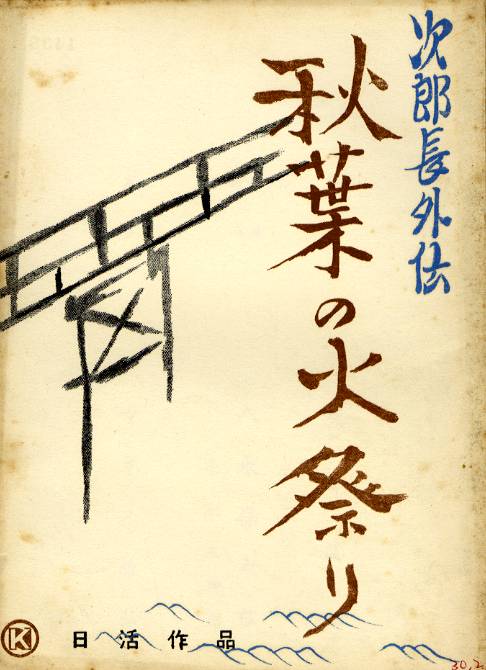 次郎長外伝
秋葉の火祭り
K
日活作品
30.2